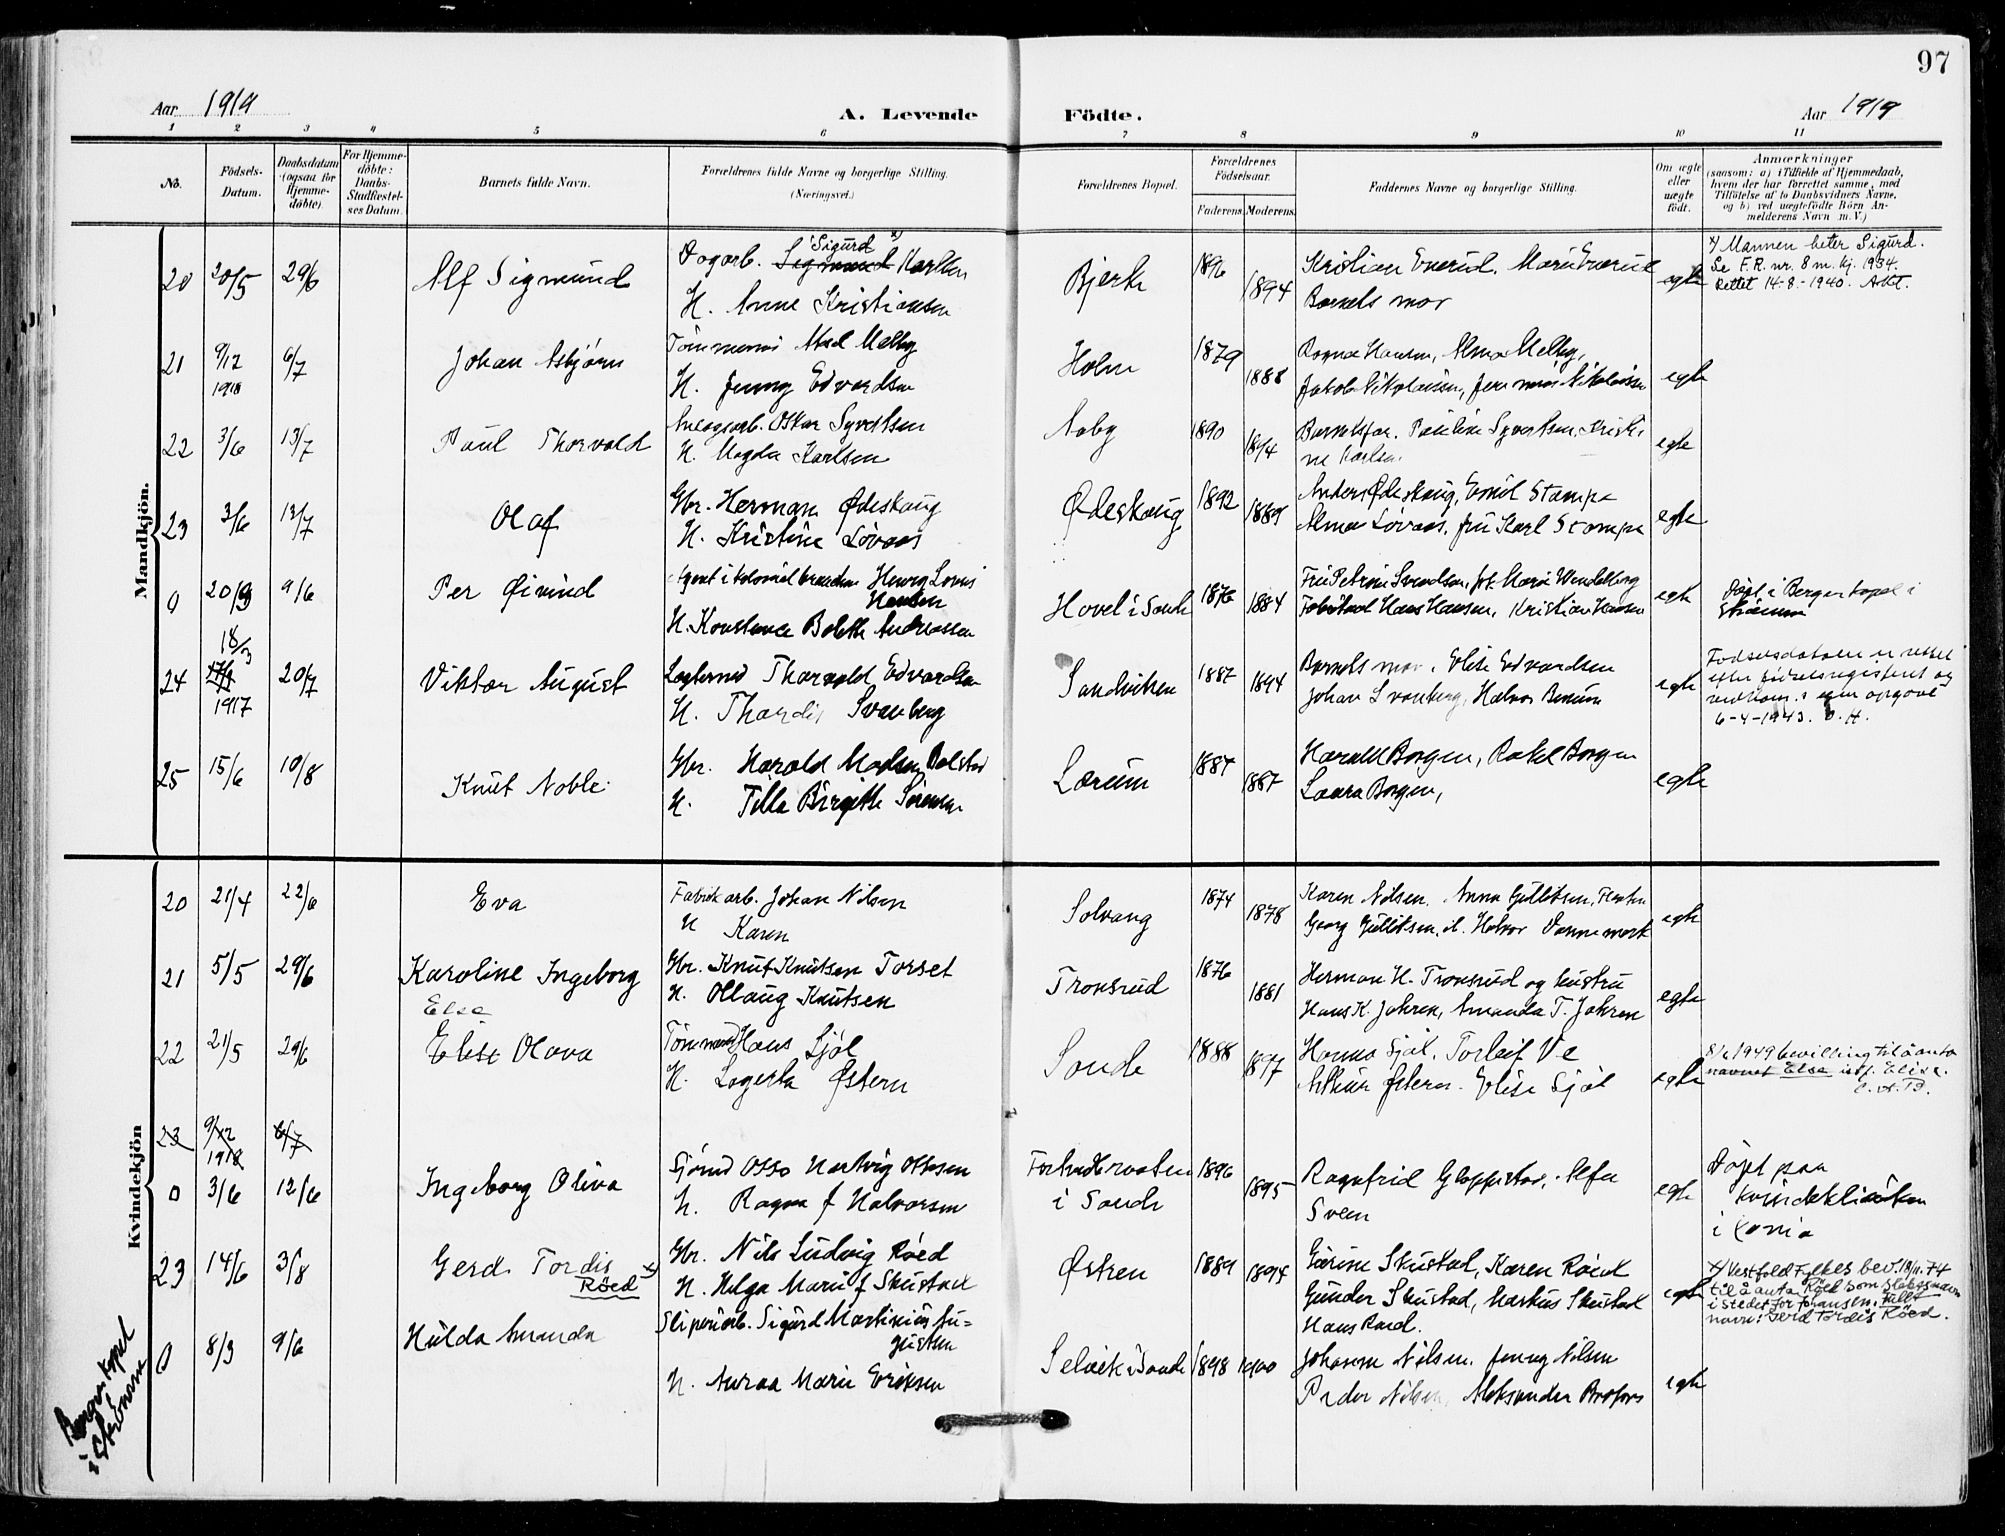 97
Aar 1919
A. Levende Födte.
Aar 1919
1 2 3 4 5 6 7 8 9 10 11
No.
Födsels-
Datum.
Daabsdatum
(ogsaa for
Hjemme-
døbte).
For Hjemme-
døbte:
Daabs-
Stadfæstel-
ses Datum.
Barnets fulde Navn.
Forældrenes fulde Navne og borgerlige Stilling.
(Næringsvei.)
Forældrenes Bopæl.
Forældrenes
Födselsaar.
Faderens. Moderens.
Faddernes Navne og borgerlige Stilling.
Om ægte
eller
uægte
født.
Anmærkninger
(saasom: a) i Tilfælde af Hjemmedaab,
hvem der har forrettet samme, med
Tilföielse af to Daabsvidners Navne,
og b) ved uægtefödte Börn An-
melderens Navn m. V.)
Mandkjön.
20 20/5 29/6 Alf Sigmund
Sigurd x)
Dagarb. Sigmund Karlsen
H. Anne Kristiansen
Bjerke 1896 1894
Kristian Enerud. Marie Enerud
Barnets mor
egte
x/ Mannen heter Sigurd.
Se F.R. nr. 8 m. kj. 1934.
Rettet 14-8.-1940.
21 9/12 1918 6/7 Johan Asbjørn
Melby
H. Jenny Edvardsen
Holm 1879 1888
Ragna Hansen, Alma Melby,
Jakob Nikolaisen,
egte
22 3/6 13/7 Paul Thorvald
Anlægsarb. Oskar Syvertsen
H. Magda Karlsen
Aaby 1890 1894
Barnets far. Pauline Syvertsen. Kristi-
ne Karlsen.
egte
23 3/6 13/7 Olaf
Gbr. Herman Ødeskaug
H. Kristine Løvaas
Ødeskaug 1892 1889
Anders Ødeskaug, Emil Stampe
Alma Løvaas, fru Karl Stampe
egte
0 20/3 9/6 Per Øivind
Agent i kolonialbranchen Henry Louis
Hansen
H. Konstance Bolette Andreassen
Hovet i Sande 1876 1884
Fru Petrine Svendsen, frk. Marie Wendelborg
Hans Hansen, Kristian Hansen
egte
Døpt i Berger kapel i
Strømm
24 18/3 17/4 1917 20/7 Viktor August
Thorvald Edvardsen
H. Thordis Svanberg
Sandviken 1887 1894
Barnets mor. Elise Edvardsen
Johan Svanberg, Halvor
egte
Fødselsdatoen er rettet
efter fødselsregisteret og
vedkom.s egen opgave
6-4-1943. O. H.
25 15/6 10/8 Knut Noble
Gbr. Harald Madsen Bolstad
H. Tilla Birgitte Sørensen
Lærum 1887 1887
Harald Borgen, Rakel Borgen
Laura Borgen,
egte
Kvindekjön
20 21/4 22/6 Eva
Fabrikarb. Johan Nilsen
H Karen
Solvang 1874 1878
Karen Nilsen. Anna Gulliksen,
Georg Gulliksen, Halvor Dannemark
egte
21 5/5 29/6 Karoline Ingeborg
Gbr. Knut Knutsen Torset
H. Ollaug Knutsen
Tronsrud 1876 1881
Herman H. Tronsrud og hustru
Hans K. Jahren, Amanda T. Jahren
egte
Else
22 21/5 29/6 Elise Olava
Tømmerm. Hans Sjøl
H. Lagerta Østern
Sande 1888 1897
Hanna Sjøl. Torleif Ve
Arthur Østern. Elise Sjøl
egte
8/6 1949 bevilling til å anta
navnet Else istf. Elise.
23 9/12 1918 6/7
0 3/6 12/6 Ingeborg Oliva
Sjømd Otto Hartvig Ottesen
H. Ragna f Halvorsen
i Sande
1896 1895
Ragnfrid
Sveen
egte
Døpt paa
kvindeklinikken
i Xania
23 14/6 3/8 Gerd Tordis x)
Røed
Gbr. Nils Ludvig Røed
H. Helga Marie f Skustad
Østren 1889 1894
Gurine Skustad, Karen Røed
Gunder Skustad, Markus Skustad
Hans Røed.
egte
x/ Vestfold Fylkes bev. 13/11.74
til å anta Röed som slektsnavn
i stedet for Johansen. Fullt
navn: Gerd Tordis Röed.
0 8/3 9/6 Hulda Amanda
Sliperiarb. Sigurd Martinius Au-
gustsen
H. Anna Marie Eriksen
Selvik i Sande 1898 1900
Johanne Nilsen. Jenny Nilsen
Peder Nilsen, Aleksander
egte
Berger kapel
i Strømm